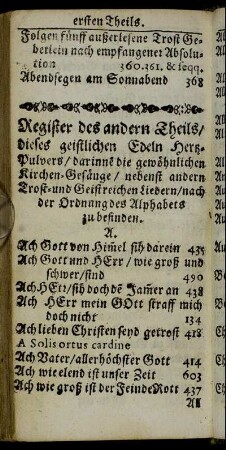 ersten Theils.
Folgen fünff außerlesene Trost Ge-
betlein nach empfangener Absolu-
tion 360.361. & seqq.
Abendsegen am Sonnabend 368
Register des andern Theils/
dieses geistlichen Edeln Hertz-
Pulvers/ darinnē die gewöhnlichen
Kirchen-Gesänge / nebenst andern
Trost- und Geistreichen Liedern/nach
der Ordnung des Alphabets
zu befinden.
A.
Ach Gott von Him̄el sih darein 435
Ach Gott und HErr / wie groß und
schwer/sind 490
Ach HErr/sih doch dē Jam̄er an 438
Ach HErr mein GOtt straff mich
doch nicht 134
Ach lieben Christen seyd getrost 418
A Solis ortus cardine
Ach Vater/allerhöchster Gott 414
Ach wie elend ist unser Zeit 603
Ach wie groß ist der Feinde Rott 437
All